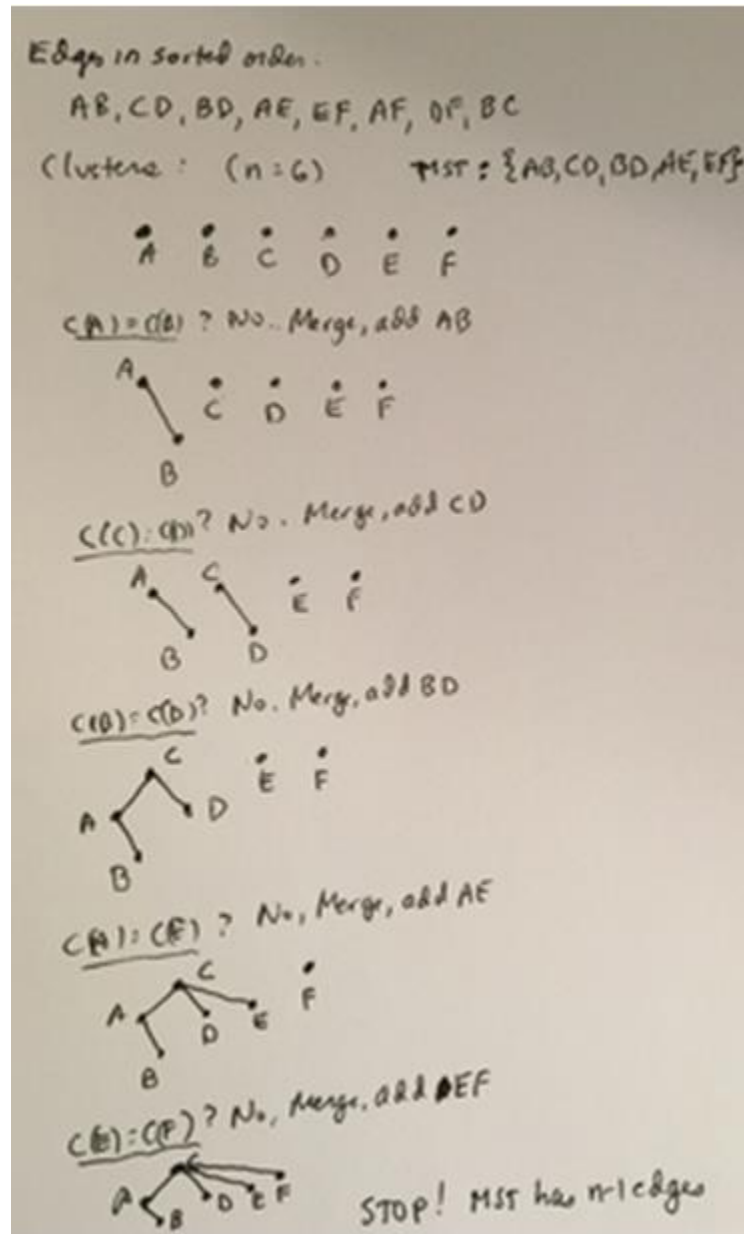 Edges in sorted order:
AB, CD, BD, AE, EF, AF, DF, BC
Clusters: (n=6) MST: {AB, CD, BD, AE, EF}
A B C D E F
C(A)=C(B)? No. Merge, add AB
A
C D E F
B
C(C)=C(D)? No. Merge, add CD
A C E F
B D
C(B)=C(D)? No. Merge, add BD
C E F
A D
B
C(A)=C(E)? No, Merge, add AE
C F
A D E
B
C(E)=C(F)? No, Merge, add EF
C
A B D E F
STOP! MST has n-1 edges